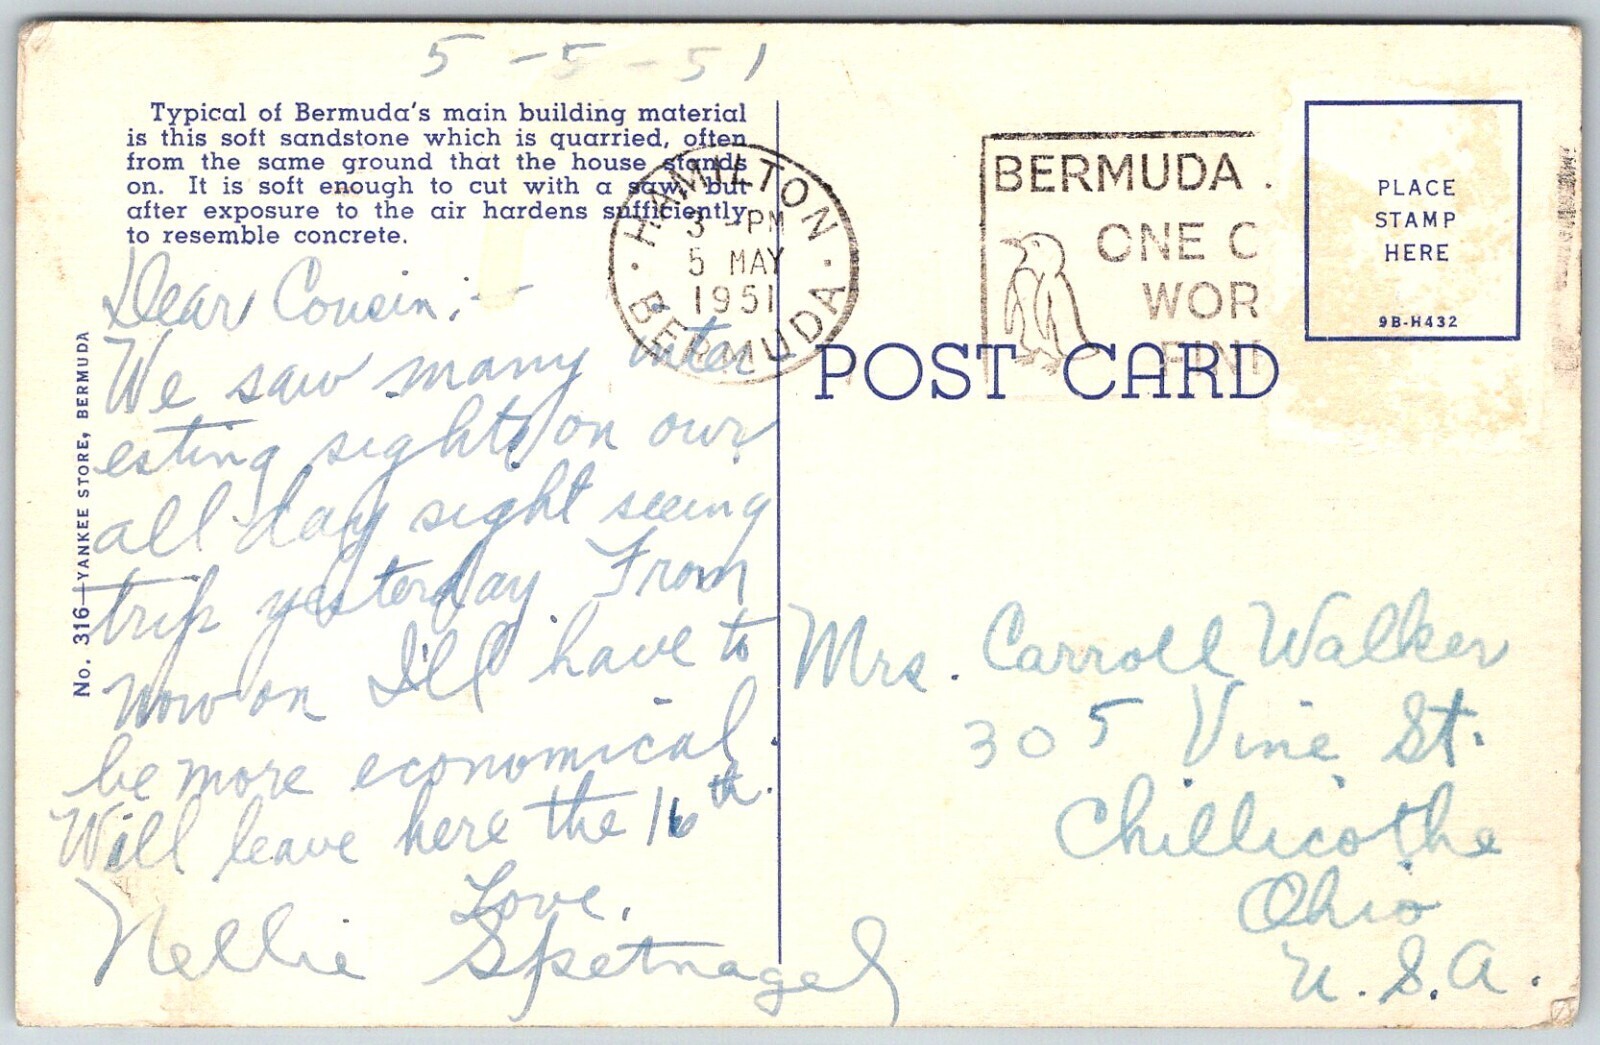 5-5-51
Typical of Bermuda's main building material
is this soft sandstone which is quarried, often
from the same ground that the house stands
on. It is soft enough to cut with a saw, but
after exposure to the air hardens sufficiently
to resemble concrete.
Dear Cousin:-
We saw many inter
esting sights on our
all day sight seeing
trip yesterday. From
now on I'll have to
be more economical.
Will leave here the 16th.
Love,
Nellie Spetnagel
No. 316—YANKEE STORE, BERMUDA
HAMILTON
3 - PM
5 MAY
1951
BERMUDA
BERMUDA .
ONE
WOR
FIN
PLACE
STAMP
HERE
9B-H432
POST CARD
Mrs. Carroll Walker
305 Vine St.
Chillicothe
Ohio
U.S.A.